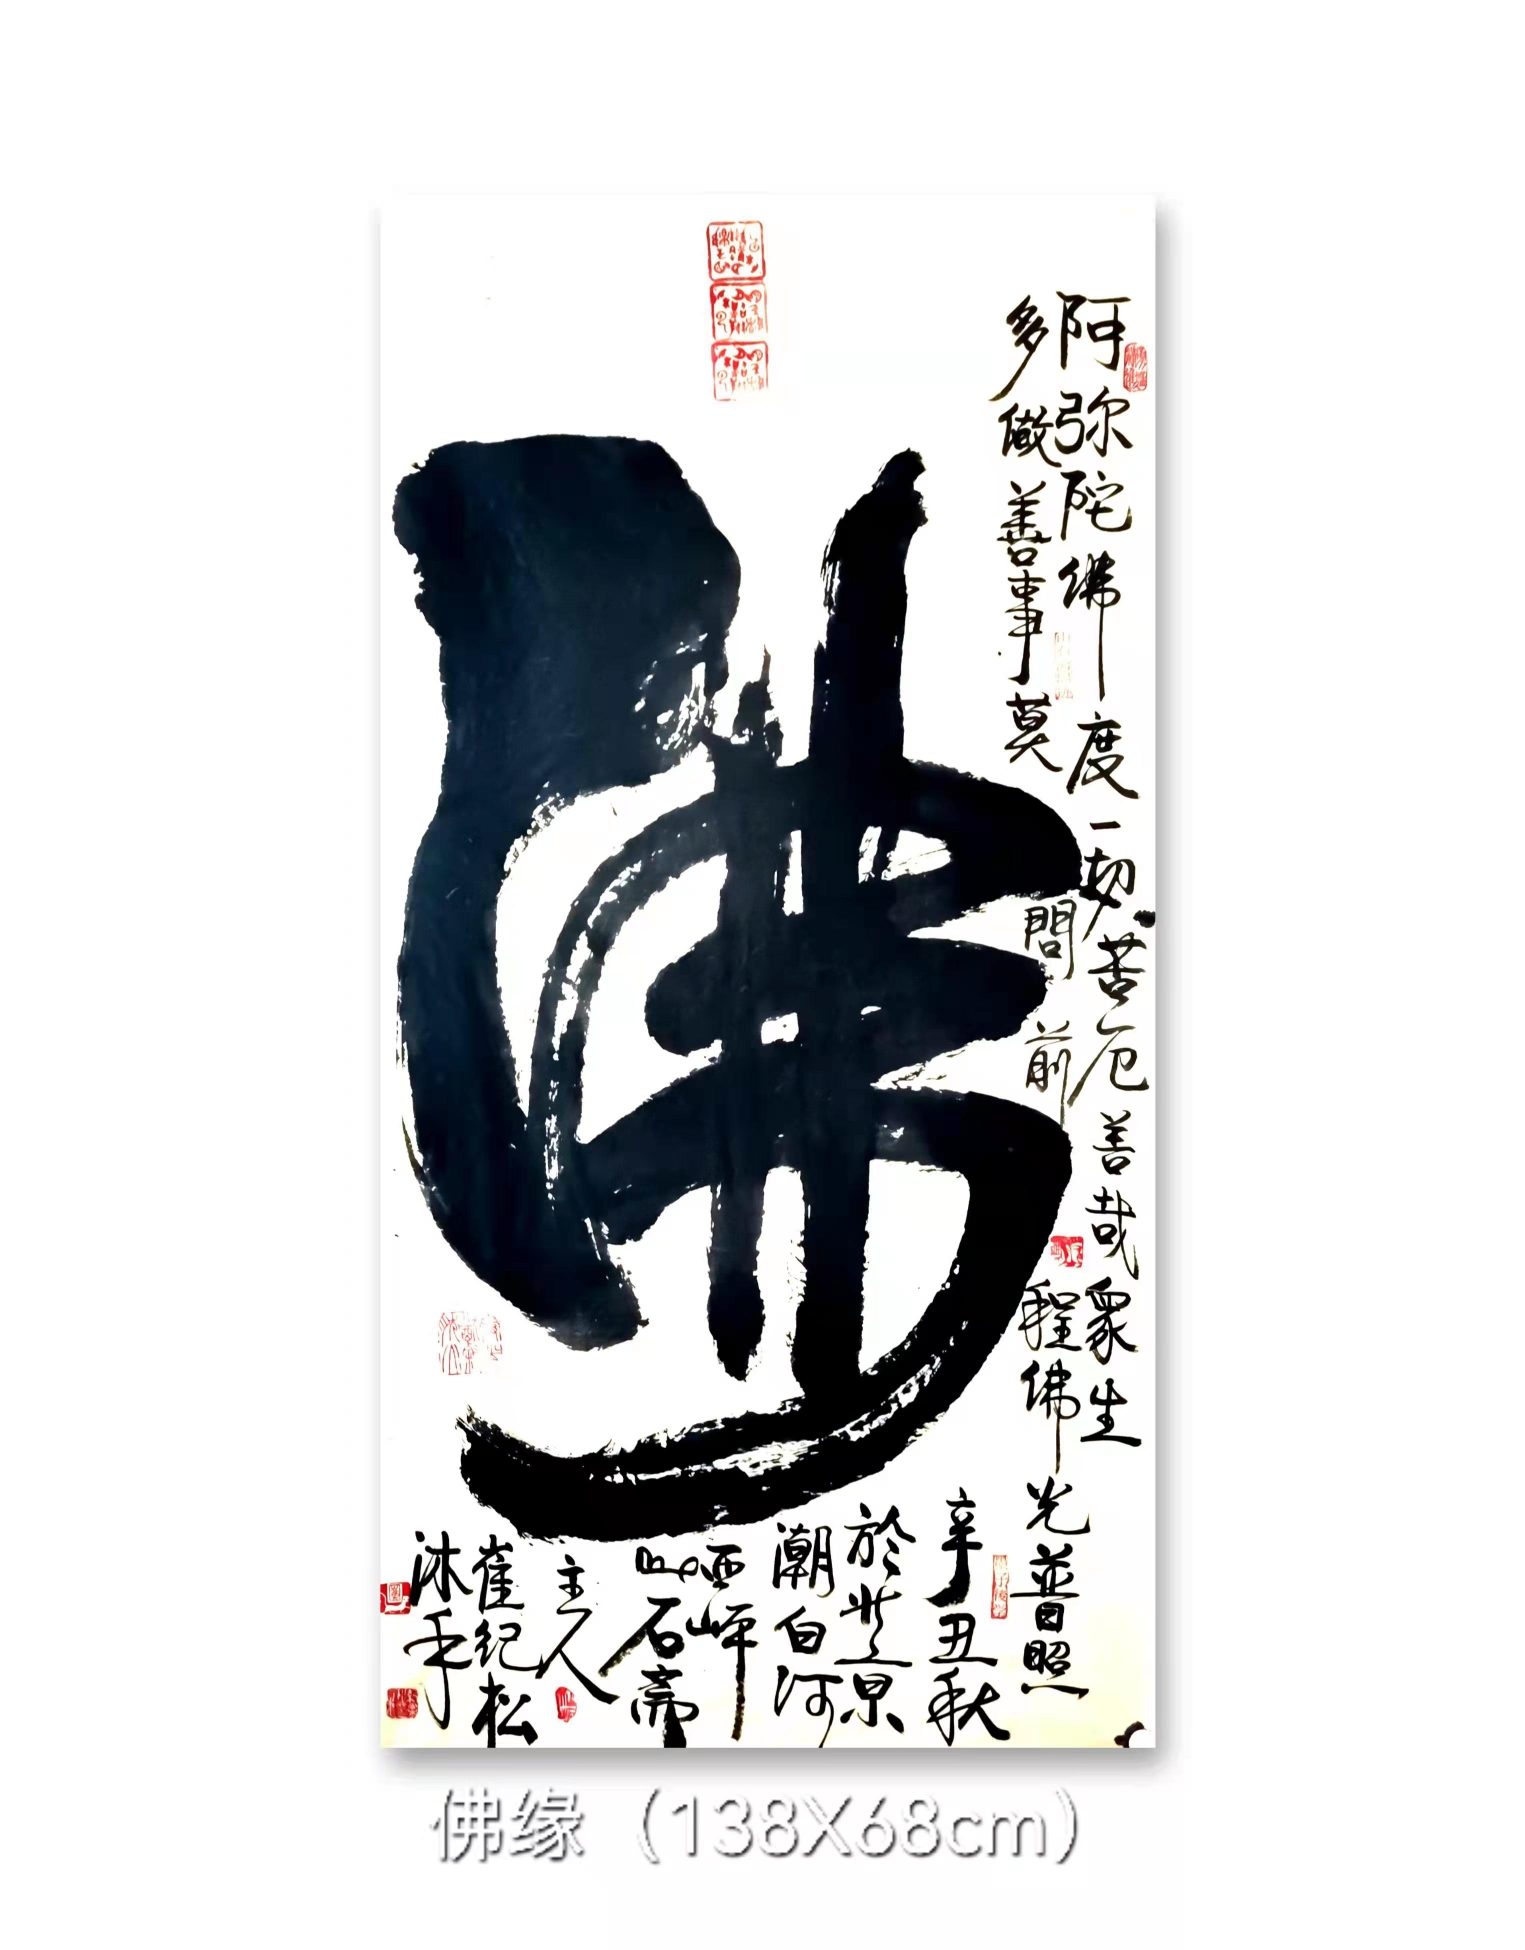 佛
阿弥陀佛度一切苦厄善哉眾生
多做善事莫問前程佛光普照
辛丑秋
於北京
潮白河
西岸
石斋
主人
崔纪松
沐手
佛缘（138X68cm）